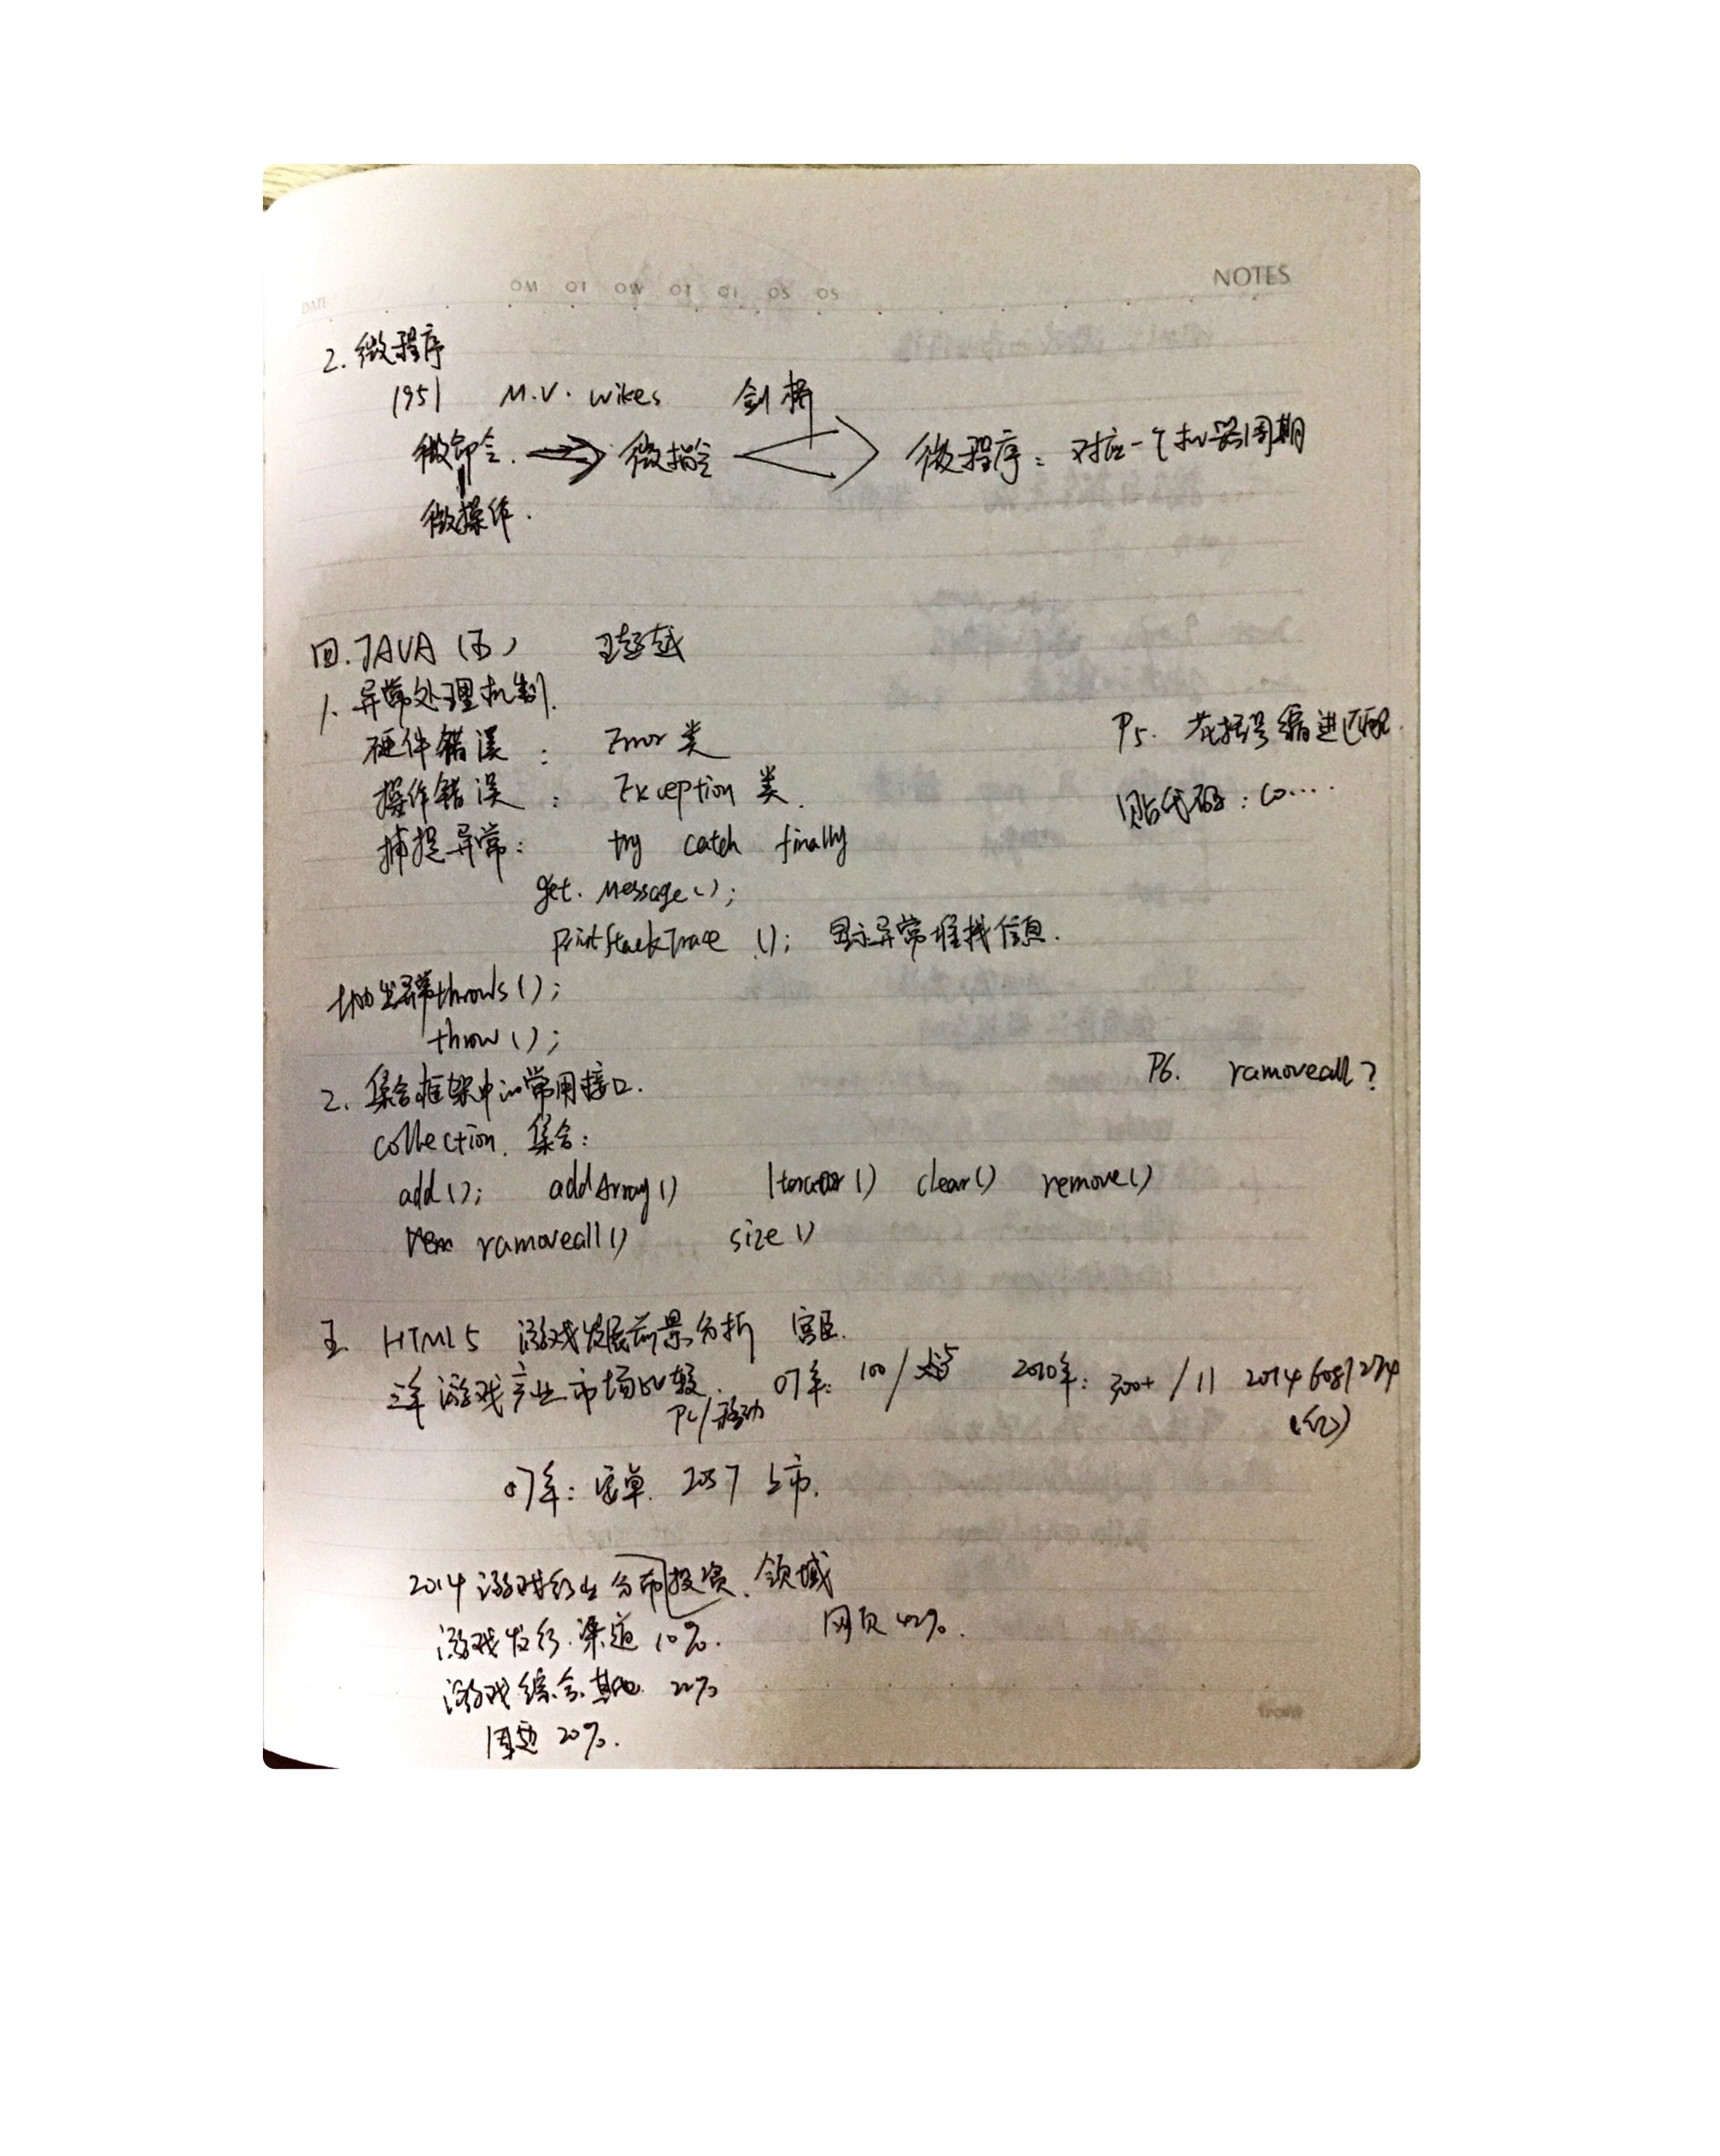 NOTES
DATE
2. 微程序
1951 M.V. wikes 剑桥
微命令. 微指令 微程序: 对应一个机器周期
微操作.
四. JAVA (五) 王超越
1. 异常处理机制.
硬件错误: Error 类
P5. 花括号缩进匹配.
操作错误: Exception 类.
贴代码: co....
捕捉异常: try catch finally
get. Message();
printStackTrace (); 显示异常堆栈信息.
抛出异常throws();
throw();
2. 集合框架中的常用接口.
P6. ramoveall?
collection. 集合:
add(); addArray() Iterator() clear() remove()
rem ramoveall() size()
五. HTML5 游戏发展前景分析 宫臣.
三年游戏产业市场比较. 07年: 100/ 2010年: 300+/11 2014 608/274
PC/移动 (亿)
07年: 安卓. 上市.
2014 游戏行业分布投资.领域
游戏发行.渠道 10%. 网页 42%.
游戏综合.其他. 22%
周边 20%.